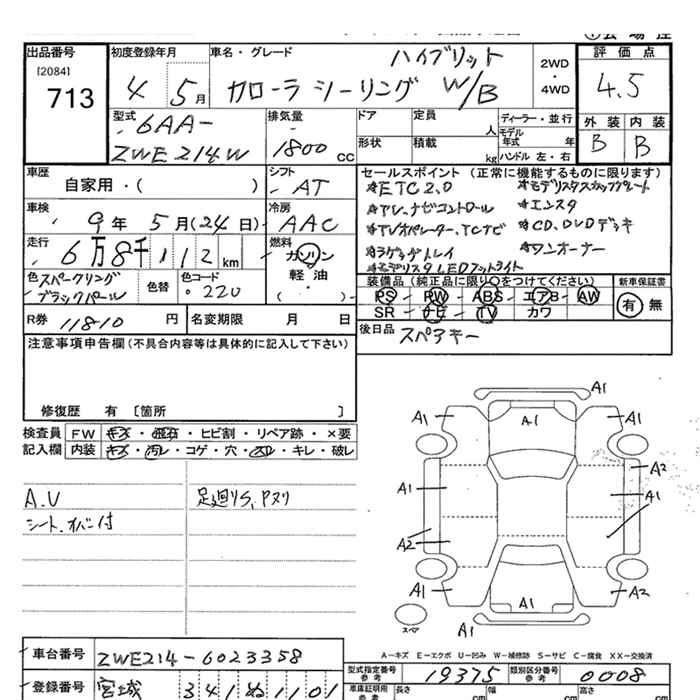 出品番号 初度登録年月 車名・グレード ハイブリット 2WD・4WD 評価点
[2084]
713 4 5月 カローラ ツーリング W/B 4.5
型式 排気量 ドア 定員 人 ディーラー・並行 外装 内装
6AA- 形状 積載 kg モデル年式 年 B B
ZWE214W 1800 CC ハンドル 左・右
車歴 シフト セールスポイント (正常に機能するものに限ります)
自家用・( ) AT ★ETC2.0 ★モデリスタスカッフプレート
車検 冷房 ★TV、ナビコントロール ★エンスタ
9年 5月(24日) AAC ★TVオペレーター、TCナビ ★CD、DVDデッキ
走行 燃料 ★ラゲッヂトレイ ★ワンオーナー
6万8千112km ガソリン ★モデリスタLEDフットライト
軽油
( )
色 スパークリングブラックパール 色替 色コード 220 装備品 (純正品に限り○をつけてください) 新車保証書
PS PW ABS エアB AW 有 無
SR ナビ TV カワ
R券 11810 円 名変期限 月 日 後日品 スペアキー
注意事項申告欄(不具合内容等は具体的に記入して下さい)
修復歴 有 〔箇所 〕
検査員 FW キズ・飛石・ヒビ割・リペア跡・×要
記入欄 内装 キズ・汚レ・コゲ・穴・スレ・キレ・破レ
A.V 足廻りS、Pヌリ
シート、オバー付
A1 A1 A1 A1
A2
A1 A1
A2
A1 A1 A2
スペア A1
A-キズ E-エクボ U-凹み W-補修跡 S-サビ C-腐食 XX-交換済
車台番号 ZWE214-6023358 型式指定番号 参考 19375 類別区分番号 参考 0008
登録番号 宮城 341 ぬ 1101 車庫証明用 参考 長さ cm 幅 cm 高さ cm